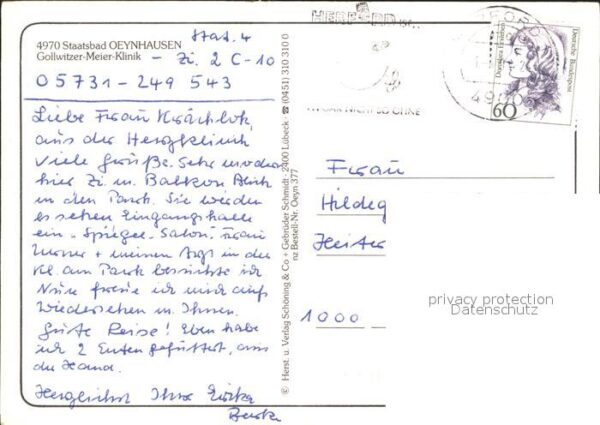 4970 Staatsbad OEYNHAUSEN
Gollwitzer-Meier-Klinik
Stat. 4
- Zi. 2 C-10
05731-249 543
Liebe Frau
aus der Herzklinik
viele Grüße. Sehr modern
hier Zi. m. Balkon Blick
in den Park. Sie würden
es sehen Eingangshalle
ein - Spiegel-Salon. Frau
+ meinen Arzt in der
Kl. am Park besuchte ich
Nun freue ich mich auf
Wiedersehen m. Ihnen.
Gute Reise! Eben habe
ich 2 Enten gefüttert, aus
der Hand.
Herzlichst Ihre
© Herst. u. Verlag Schöning & Co + Gebrüder Schmidt · 2400 Lübeck · ☎ (0451) 310 310 0
nz Bestell-Nr. Oeyn 377
HERFORD
NICHT OHNE
4900
Dorothea Erxleben
Deutsche Bundespost
60
Frau
Hildeg
1000
privacy protection
Datenschutz